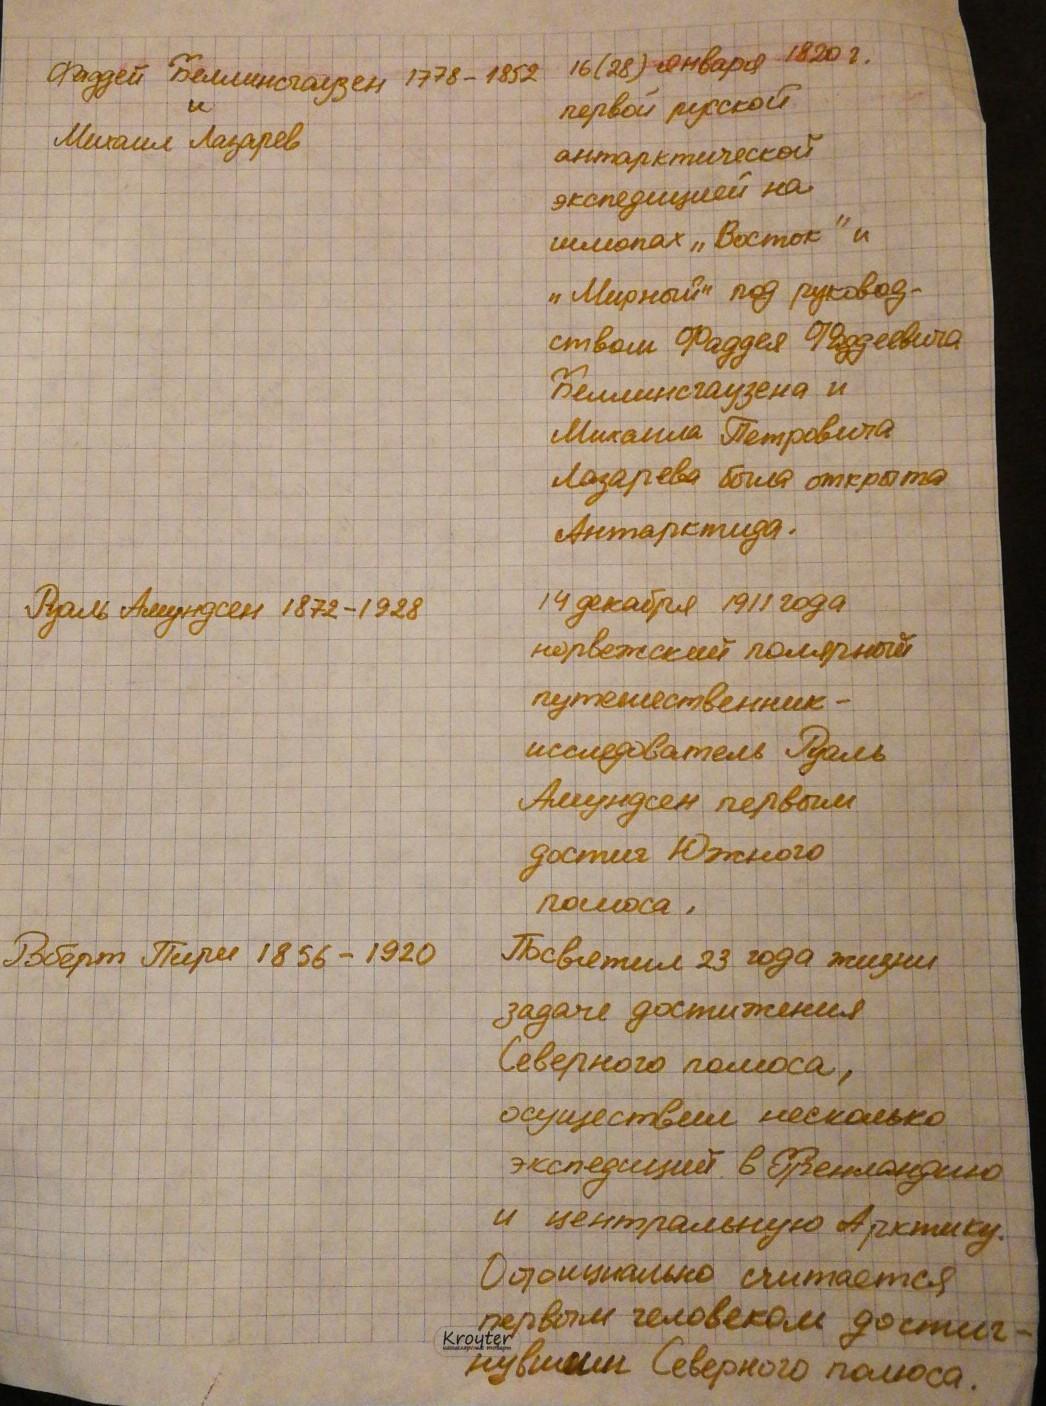 Фаддей Беллинсгаузен 1778-1852
и
Михаил Лазарев
16(28) января 1820 г.
первой русской
антарктической
экспедицией на
шлюпах „Восток" и
„Мирный" под руковод-
ством Фаддея Фаддеевича
Беллинсгаузена и
Михаила Петровича
Лазарева была открыта
Антарктида.
Руаль Амундсен 1872-1928
14 декабря 1911 года
норвежский полярный
путешественник-
исследователь Руаль
Амундсен первым
достиг Южного
полюса.
Роберт Пири 1856-1920
Посвятил 23 года жизни
задаче достижения
Северного полюса,
осуществил несколько
экспедиций в Гренландию
и центральную Арктику.
Официально считается
первым человеком достиг-
нувшим Северного полюса.
Kroyter
канцелярские товары